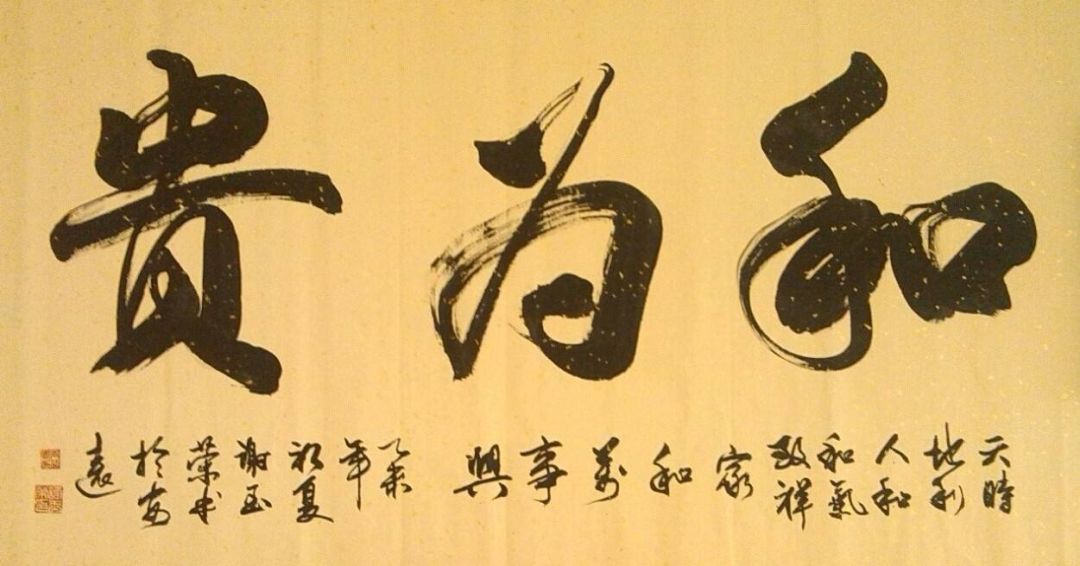 和为贵
天時
地利
人和
和氣
致祥
家
和
萬
事
興
乙未
年
初夏
謝玉
榮书
於安
遠